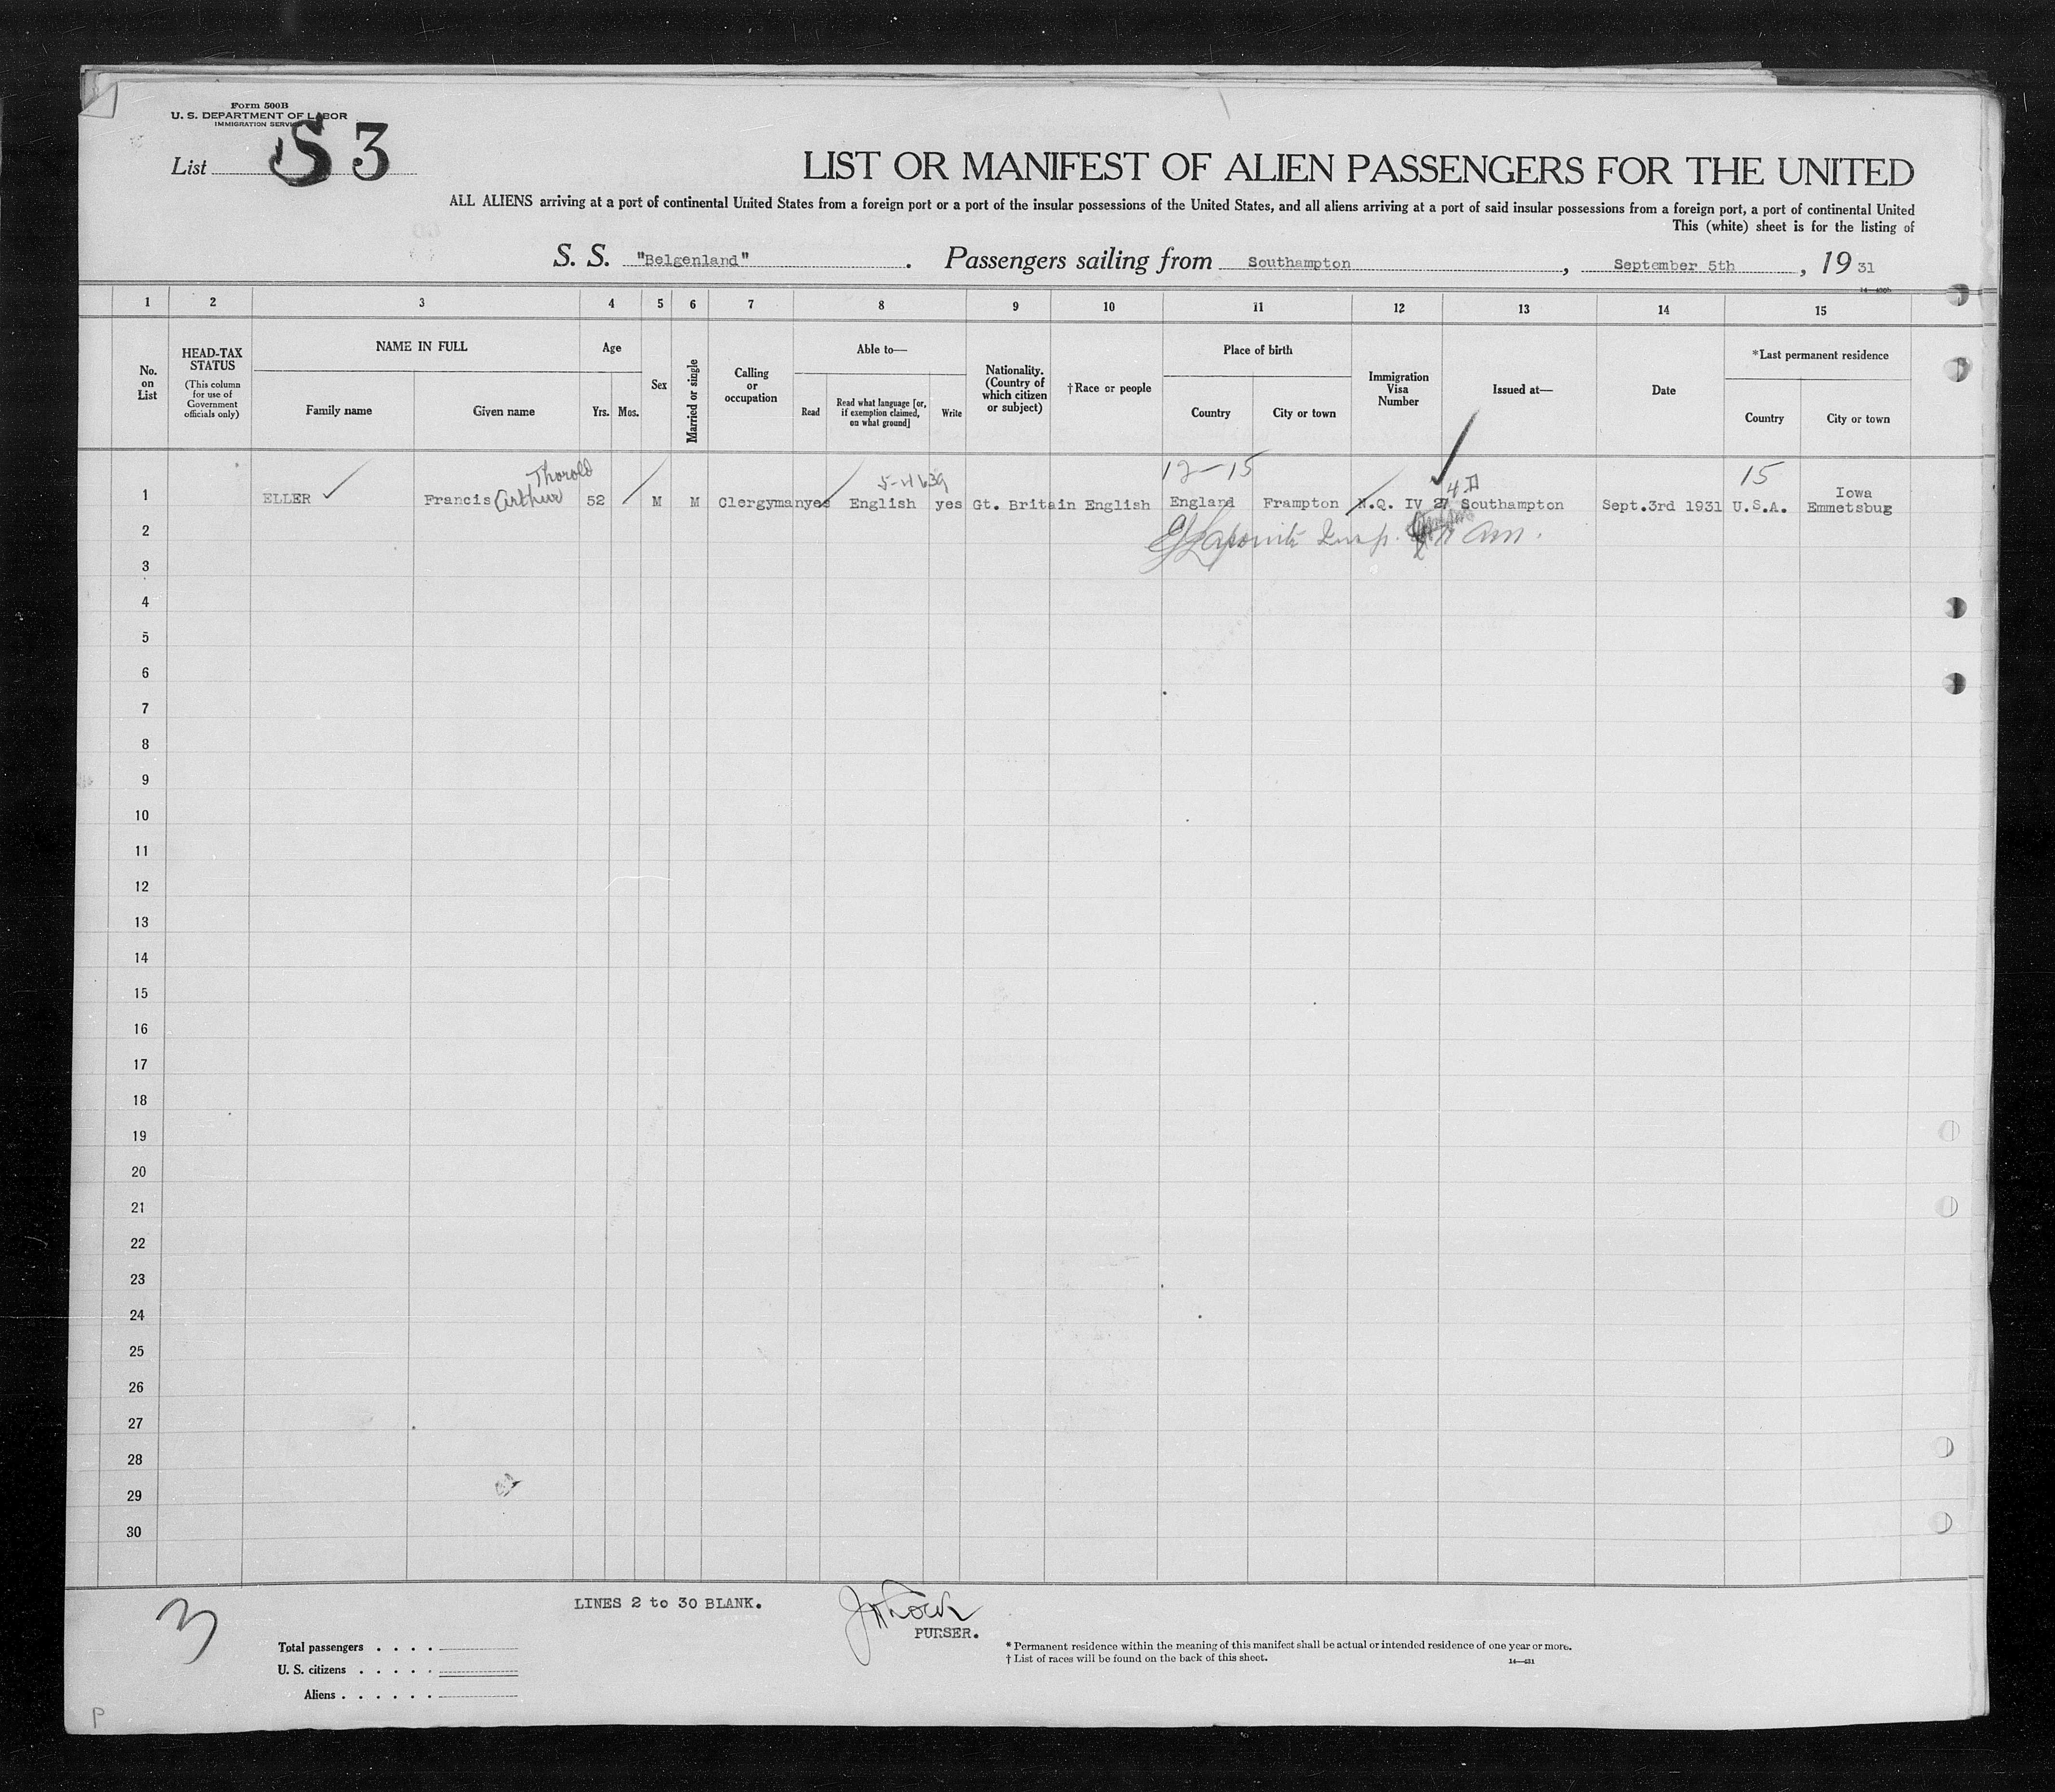 Form 500B
U. S. DEPARTMENT OF LABOR
IMMIGRATION SERVICE
List S 3
LIST OR MANIFEST OF ALIEN PASSENGERS FOR THE UNITED
ALL ALIENS arriving at a port of continental United States from a foreign port or a port of the insular possessions of the United States, and all aliens arriving at a port of said insular possessions from a foreign port, a port of continental United
This (white) sheet is for the listing of
S. S. "Belgenland". Passengers sailing from Southampton, September 5th, 1931
1 2 3 4 5 6 7 8 9 10 11 12 13 14 15
No. on List
HEAD-TAX STATUS
(This column for use of Government officials only)
NAME IN FULL
Family name
Given name
Age
Yrs. Mos.
Sex
Married or single
Calling or occupation
Able to—
Read
Read what language [or, if exemption claimed, on what ground]
Write
Nationality. (Country of which citizen or subject)
†Race or people
Place of birth
Country
City or town
Immigration Visa Number
Issued at—
Date
*Last permanent residence
Country
City or town
Thorold
12-15
15
1 ELLER Francis Arthur 52 M M Clergyman yes English yes Gt. Britain English England Frampton N.Q. IV 27 Southampton Sept.3rd 1931 U.S.A. Iowa Emmetsbug
2
3
4
5
6
7
8
9
10
11
12
13
14
15
16
17
18
19
20
21
22
23
24
25
26
27
28
29
30
LINES 2 to 30 BLANK.
PURSER.
3
Total passengers . . . .
U. S. citizens . . . . .
Aliens . . . . . .
* Permanent residence within the meaning of this manifest shall be actual or intended residence of one year or more.
† List of races will be found on the back of this sheet.
14—431
P